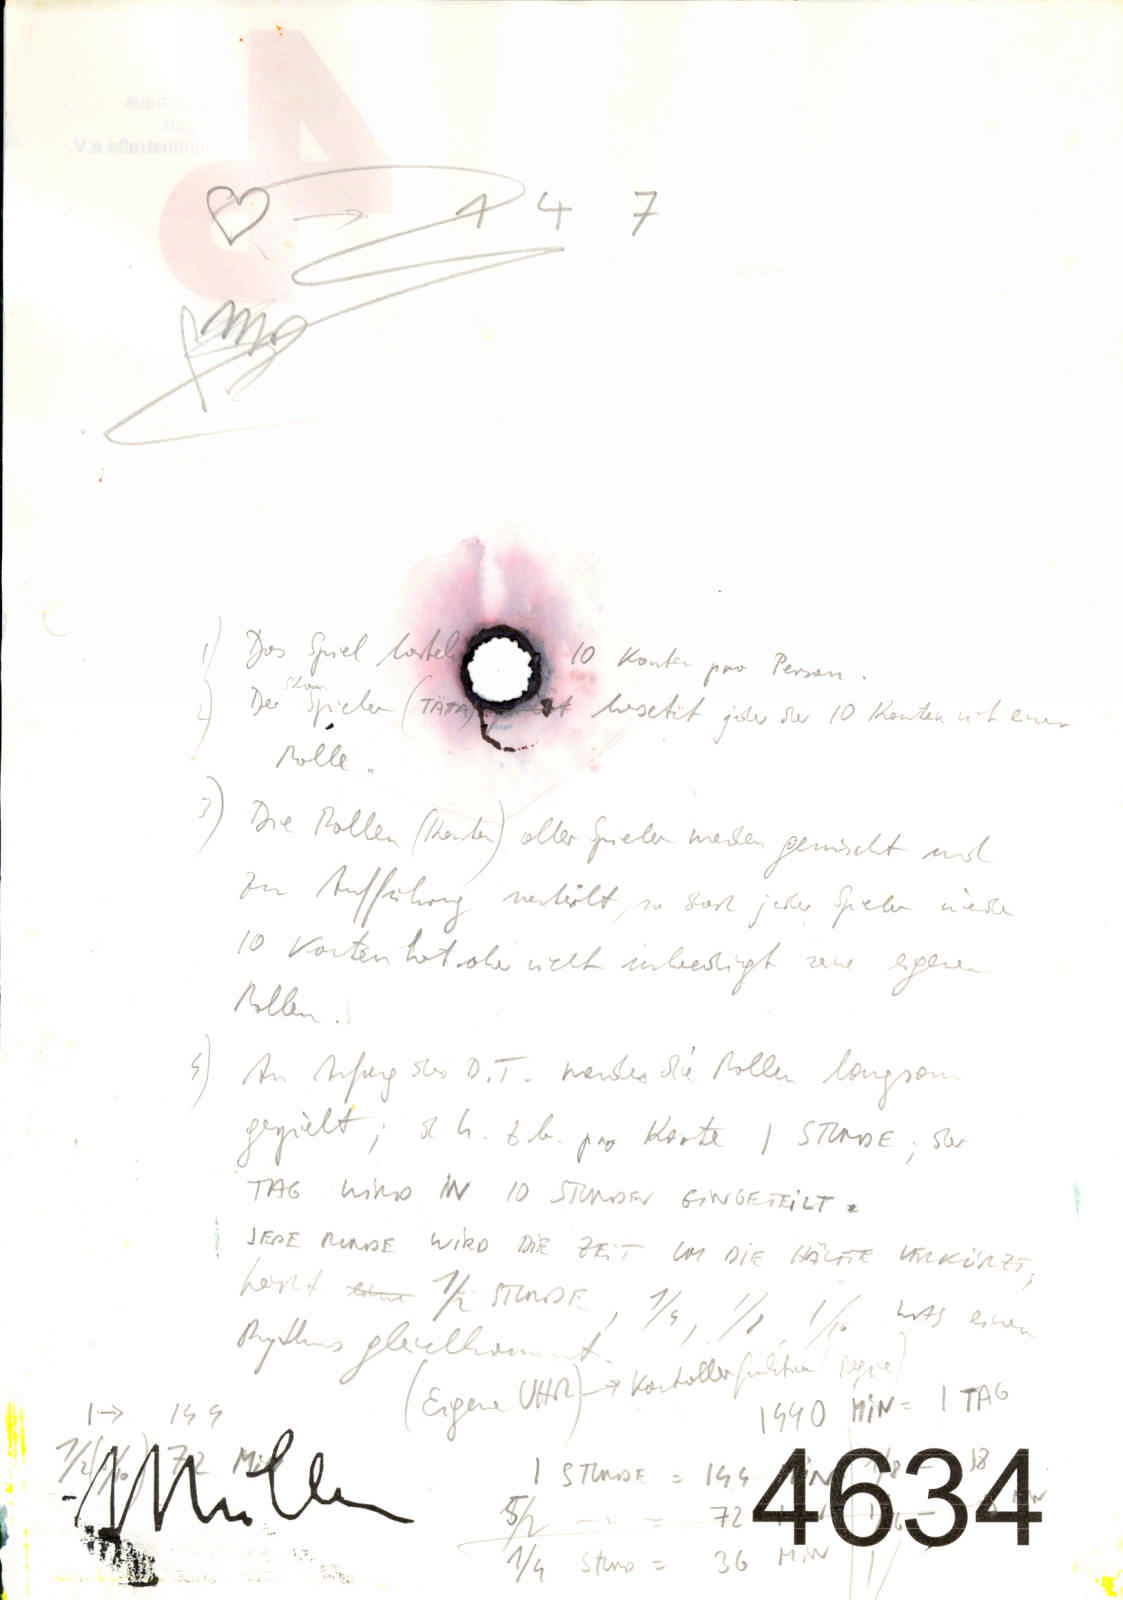 1 4 7
1) Das Spiel 10 Karten pro Person.
2) Der Spieler (TÄTA) besetzt jeder der 10 Karten mit einer
Rolle.
3) Die Rollen (Karten) aller Spieler werden gemischt und
zur Aufführung verteilt, so dass jeder Spieler wieder
10 Karten hat aber nicht unbedingt seine eigenen
Rollen.
4) Am Anfang des D.T. werden die Rollen langsam
gespielt; d.h. z.b. pro Karte 1 STUNDE; der
TAG WIRD IN 10 STUNDEN EINGETEILT.
JEDE RUNDE WIRD DIE ZEIT UM DIE HÄLFTE VERKÜRZT,
heißt 1/2 STUNDE, 1/4, 1/8, 1/16 WAS einem
Rhythmus gleichkommt.
(Eigene UHR) → Kontrollerfunktion (Regie)
1 → 144
1440 MIN = 1 TAG
72 Min
1 STUNDE = 144 MIN 1/8 – 18
72 MIN
1/4 STUND = 36 MIN
Müller
4634